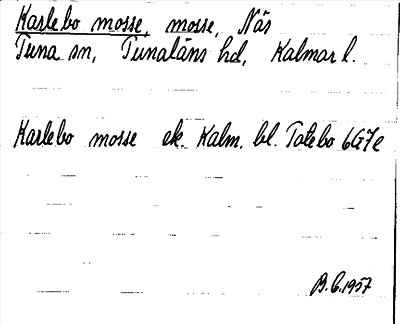 Karlebo mosse, mosse, Näs
Tuna sn, Tunaläns hd, Kalmar l.
Karlebo mosse ek. Kalm. bl. Totebo 6G7e
B.C. 1957